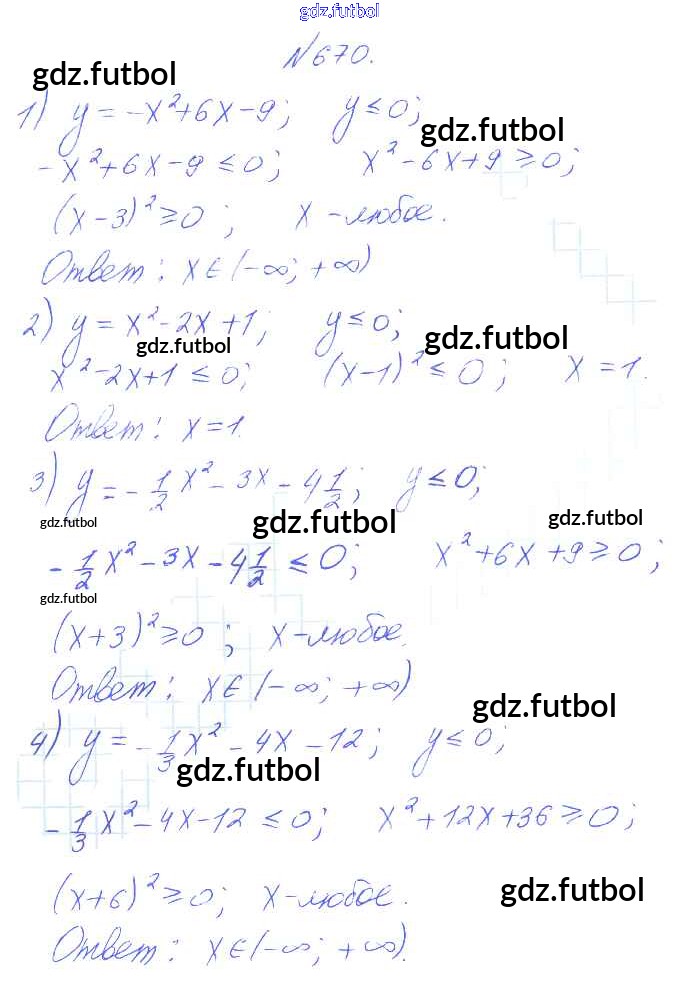 gdz.futbol
№670.
gdz.futbol
1) y = -x²+6x-9; y ≤ 0;
gdz.futbol
-x²+6x-9 ≤ 0; x²-6x+9 ≥ 0;
(x-3)² ≥ 0; x-любое.
Ответ: x∈(-∞; +∞)
2) y = x²-2x+1; y ≤ 0;
gdz.futbol gdz.futbol
x²-2x+1 ≤ 0; (x-1)² ≤ 0; x=1.
Ответ: x=1.
3) y = -1/2x²-3x-4 1/2; y ≤ 0;
gdz.futbol gdz.futbol gdz.futbol
-1/2x²-3x-4 1/2 ≤ 0; x²+6x+9 ≥ 0;
gdz.futbol
(x+3)² ≥ 0; x-любое.
Ответ: x∈(-∞; +∞)
gdz.futbol
4) y = -1/3x²-4x-12; y ≤ 0;
gdz.futbol
-1/3x²-4x-12 ≤ 0; x²+12x+36 ≥ 0;
(x+6)² ≥ 0; x-любое.
gdz.futbol
Ответ: x∈(-∞; +∞).